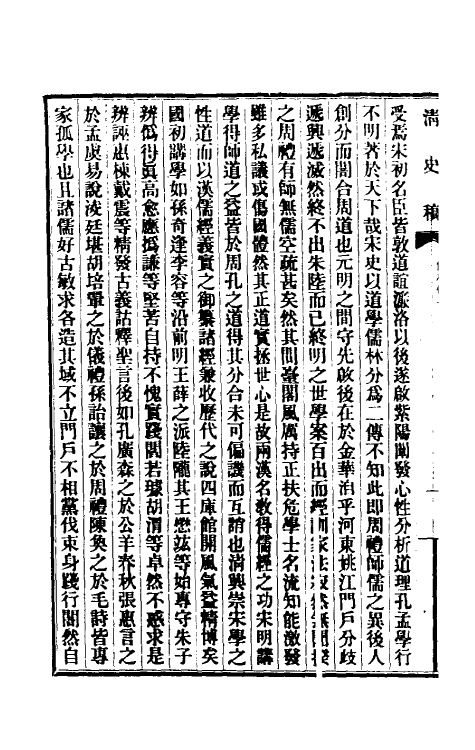 清史稿
受焉宋初名臣皆敦道誼濂洛以後遂啟紫陽闡發心性分析道理孔孟學行
不明著於天下哉宋史以道學儒林分爲二傳不知此即周禮師儒之異後人
創分而闇合周道也元明之間守先啟後在於金華洎乎河東姚江門戶分歧
遞興遞滅然終不出朱陸而已終明之世學案百出而經訓家法寂然無聞揆
之周禮有師無儒空疏甚矣然其間臺閣風厲持正扶危學士名流知能激發
雖多私議或傷國體然其正道實拯世心是故兩漢名教得儒經之功宋明講
學得師道之益皆於周孔之道得其分合未可偏譏而互誚也清興崇宋學之
性道而以漢儒經義實之御纂諸經兼收歷代之說四庫館開風氣益精博矣
國初講學如孫奇逢李容等沿前明王薛之派陸隴其王懋竑等始專守朱子
辨僞得眞高愈應撝謙等堅苦自持不愧實踐閻若璩胡渭等卓然不惑求是
辨誣惠棟戴震等精發古義詁釋聖言後如孔廣森之於公羊春秋張惠言之
於孟虞易說淩廷堪胡培翬之於儀禮孫詒讓之於周禮陳奐之於毛詩皆專
家孤學也且諸儒好古敏求各造其域不立門戶不相黨伐束身踐行闇然自